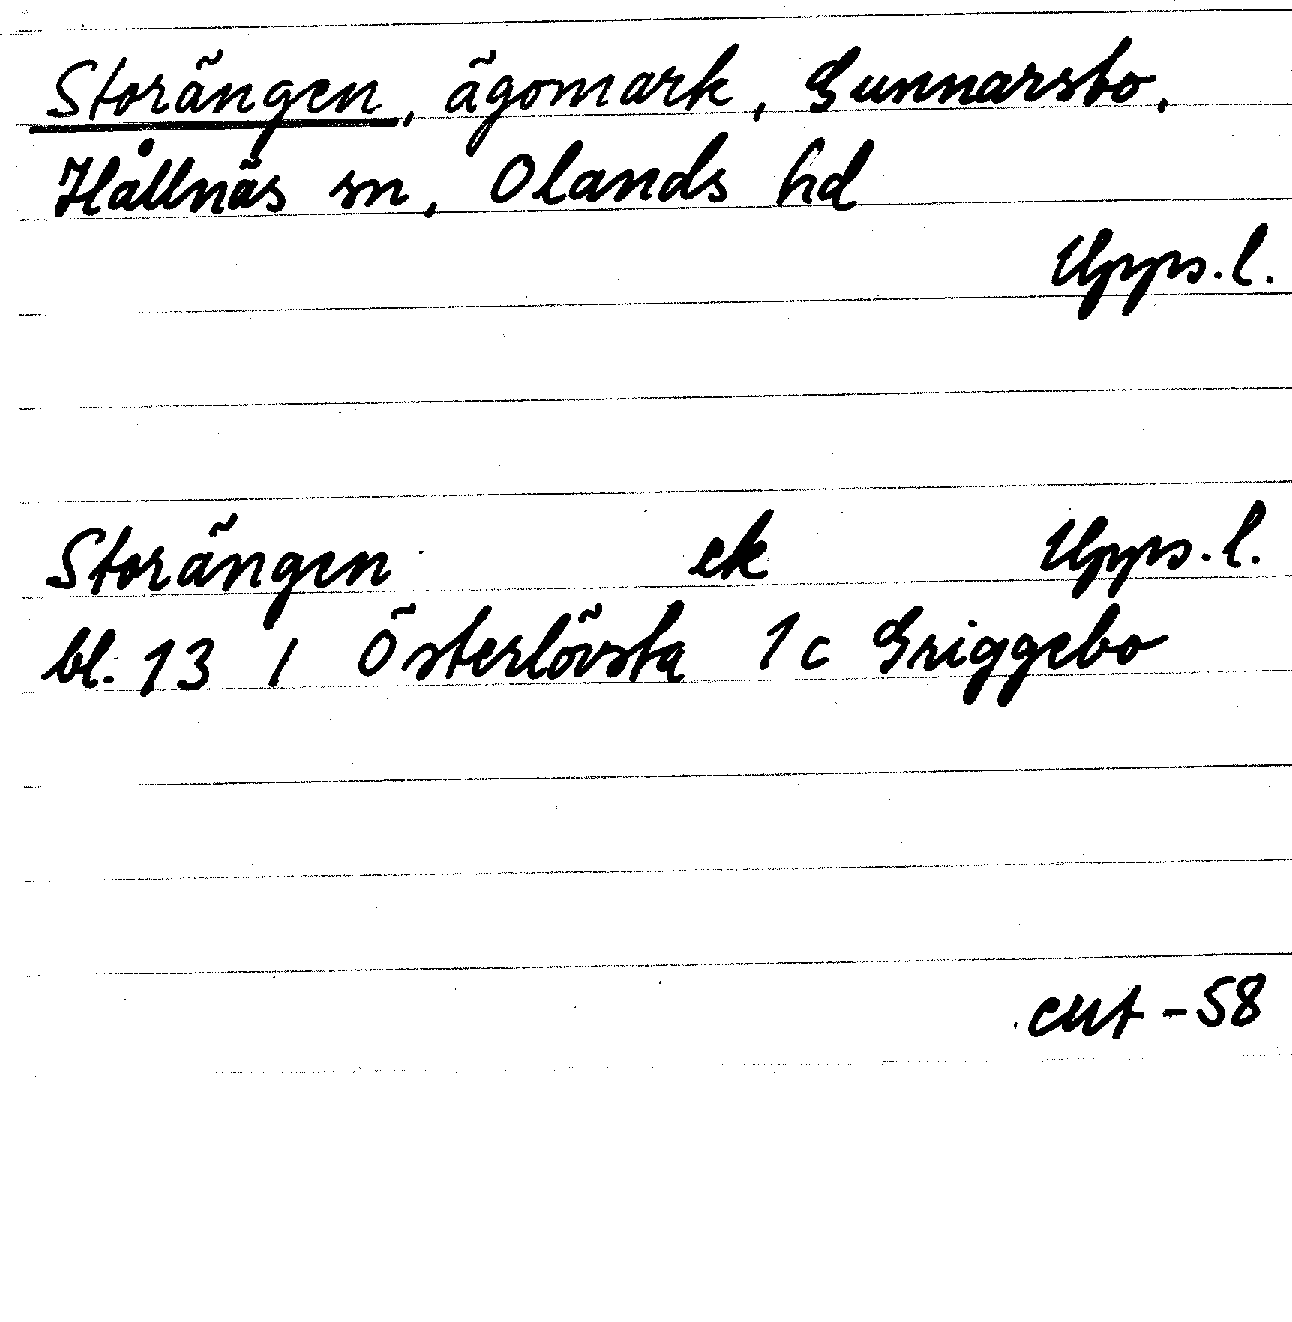 Storängen, ägomark, Gunnarsbo,
Hållnäs sn, Olands hd
Upps. l.
Storängen ek Upps. l.
bl. 13 1 Österlövsta 1 c Griggebo
-58